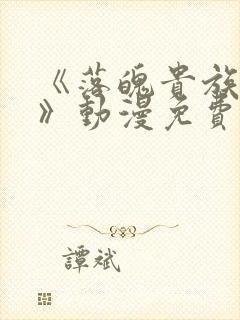 《落魄貴族
》動漫免費
譚斌